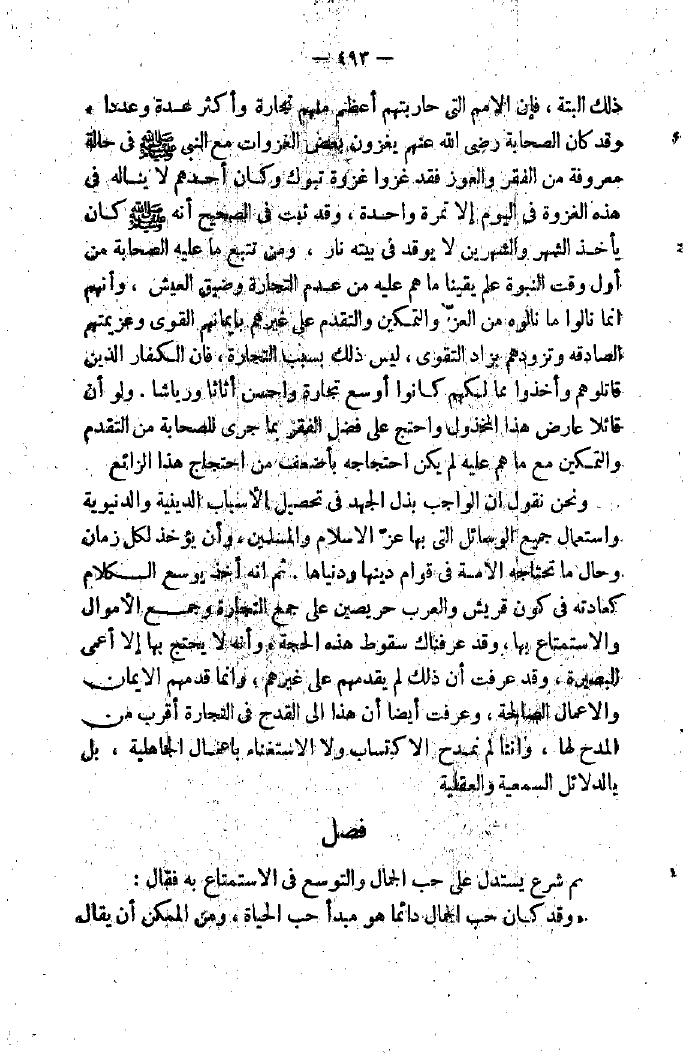 — ٤٩٣ —
ذلك البتة ، فإن الامم التى حاربتهم أعظم منهم تجارة وأكثر عدة وعددا .
وقد كان الصحابة رضى الله عنهم يغزون بعض الغزوات مع النبى ﷺ فى حالة
معروفة من الفقر والعوز فقد غزوا غزوة تبوك وكان أحدهم لا يناله فى
هذه الغزوة فى اليوم إلا تمرة واحدة ، وقد ثبت فى الصحيح أنه ﷺ كان
يأخذ الشهر والشهرين لا يوقد فى بيته نار ، ومن تتبع ما عليه الصحابة من
أول وقت النبوة علم يقينا ما هم عليه من عدم التجارة وضيق العيش ، وأنهم
انما نالوا ما نالوه من العزّ والتمكين والتقدم على غيرهم بإيمانهم القوى وعزيمتهم
الصادقه وتزودهم بزاد التقوى ، ليس ذلك بسبب التجارة ، فان الكفار الذين
قاتلوهم وأخذوا ممالكهم كانوا أوسع تجارة واحسن أثاثا ورياشا . ولو أن
قائلا عارض هذا المخذول واحتج على فضل الفقر بما جرى للصحابة من التقدم
والتمكين مع ما هم عليه لم يكن احتجاجه بأضعف من احتجاج هذا الزائع
ونحن نقول ان الواجب بذل الجهد فى تحصيل الأسباب الدينية والدنيوية
واستعمال جميع الوسائل التى بها عزّ الاسلام والمسلمين ، وأن يؤخذ لكل زمان
وحال ما تحتاجه الامة فى قوام دينها ودنياها . ثم انه أخذ يوسع الكلام
كعادته فى كون قريش والعرب حريصين على جمع التجارة وجمع الأموال
والاستمتاع بها ، وقد عرفناك سقوط هذه الحجة ، وأنه لا يحتج بها إلا أعمى
البصيرة ، وقد عرفت أن ذلك لم يقدمهم على غيرهم ، وانما قدمهم الايمان
والاعمال الصالحة ، وعرفت أيضا أن هذا الى القدح فى التجارة أقرب من
المدح لها ، واننا لم نمدح الاكتساب ولا الاستغناء باعمال الجاهلية ، بل
بالدلائل السمعية والعقلية
فصل
ثم شرع يستدل على حب الجمال والتوسع فى الاستمتاع به فقال :
« وقد كان حب الجمال دائما هو مبدأ حب الحياة ، ومن الممكن أن يقال